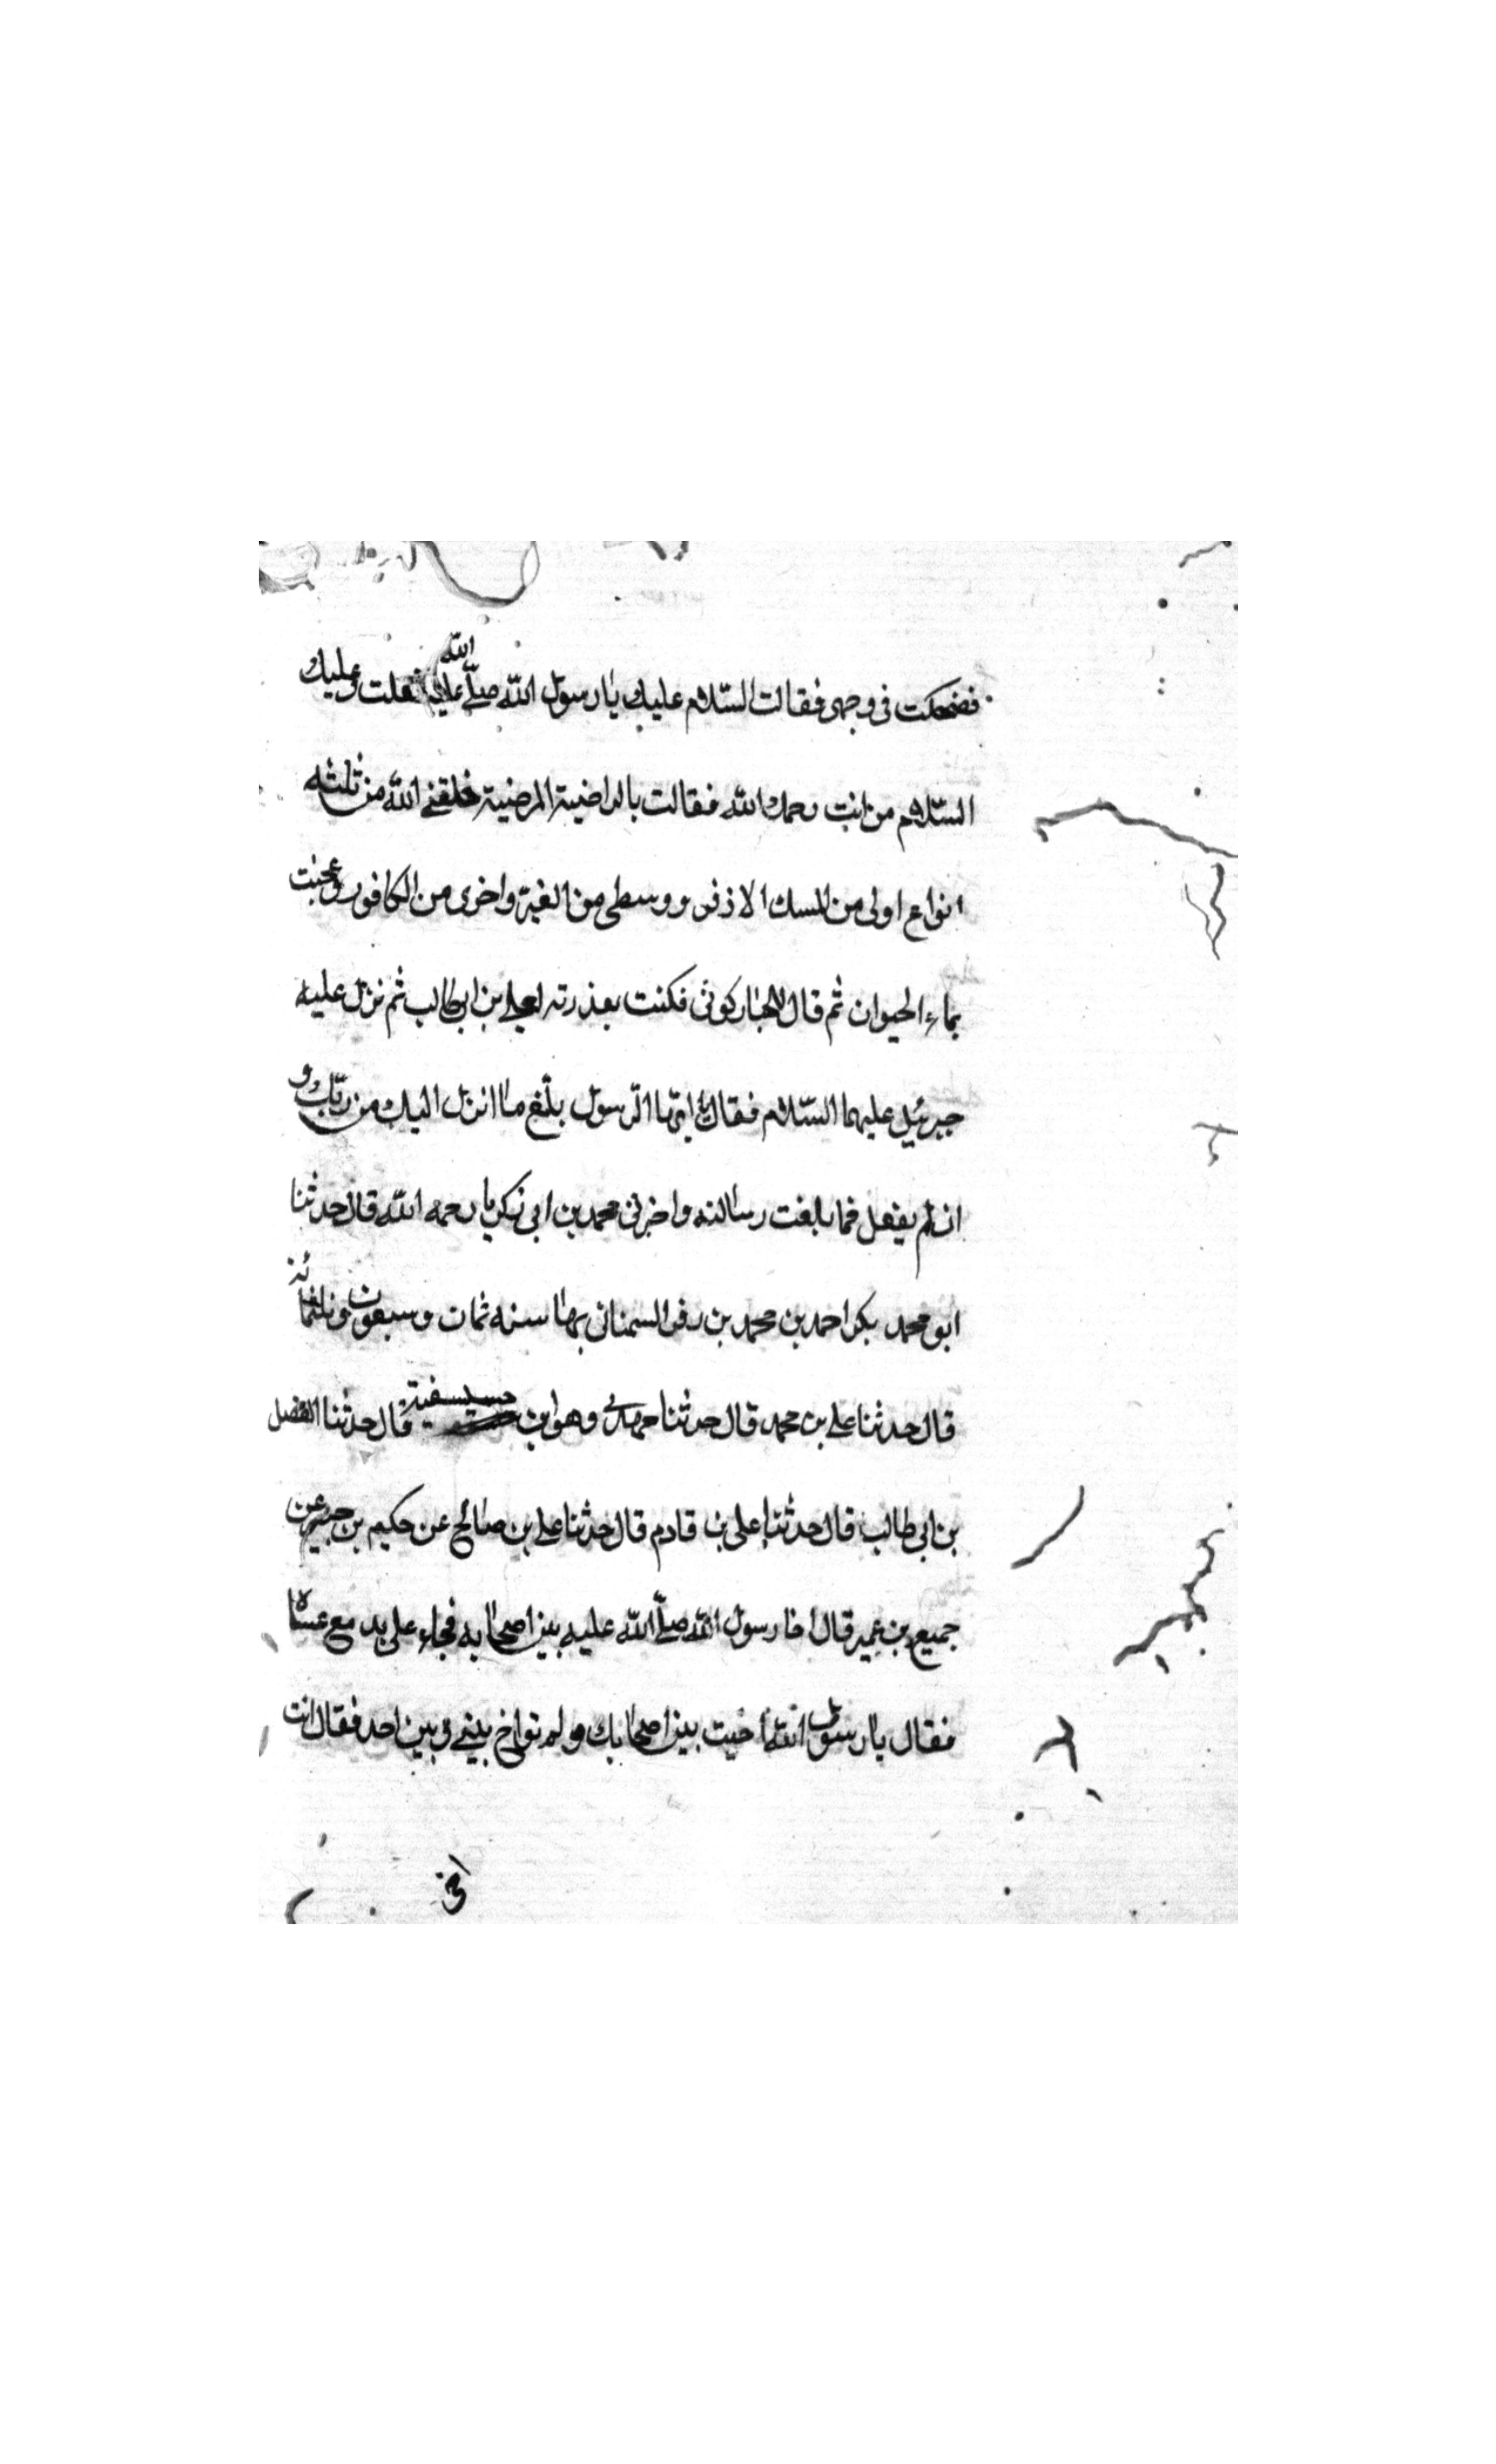 فضحكت فى وجهى فقالت السّلام عليك يا رسول الله صلّى الله عليك فقلت وعليك
السّلام من انت رحمك الله فقالت بالراضية المرضية خلقنى الله من ثلثه
انواع اولى من المسك الاذفر ووسطى من العنبرة واخرى من الكافور وعجنت
بماء الحيوان ثم قال الجبار كونى فكنت بعذرته لعلى بن ابيطالب ثم نزل عليه
جبرئيل عليهما السّلام فقال يا ايّها الرّسول بلّغ ما انزل اليك من ربّك و
ان لم يفعل فما بلغت رسالته واخبرنى محمد بن ابى زكريا رحمه الله قال حدثنا
ابو محمد بكر احمد بن محمد بن رفر السمنانى بها سنه ثمان وسبعون وثلثمائه
قال حدثنا على بن محمد قال حدثنا وهو ابن قال حدثنا الفضل
بن ابى طالب قال حدثنا على بن قادم قال حدثنا على بن صالح عن حكيم بن جبير عن
جميع بن عمير قال اخا رسول الله صلّى الله عليه بين اصحابه فجاء على يدمع عيناه
فقال يا رسول الله أخيت بين اصحابك ولم تواخ بينى وبين احد فقال انت
اخى